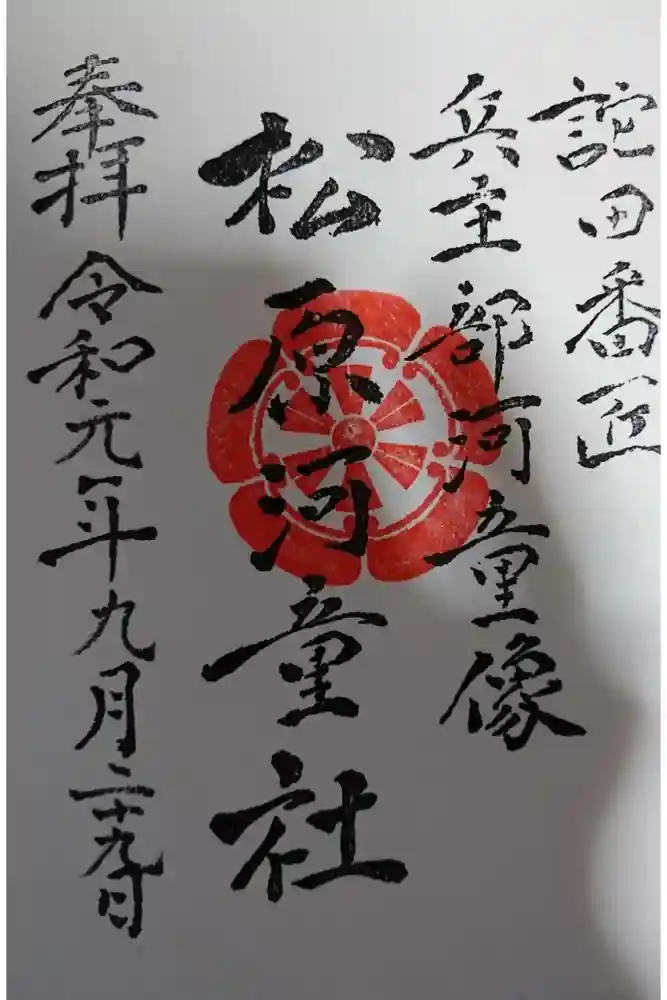 詑田番匠
兵主部河童像
松原河童社
奉拝 令和元年九月二十九日